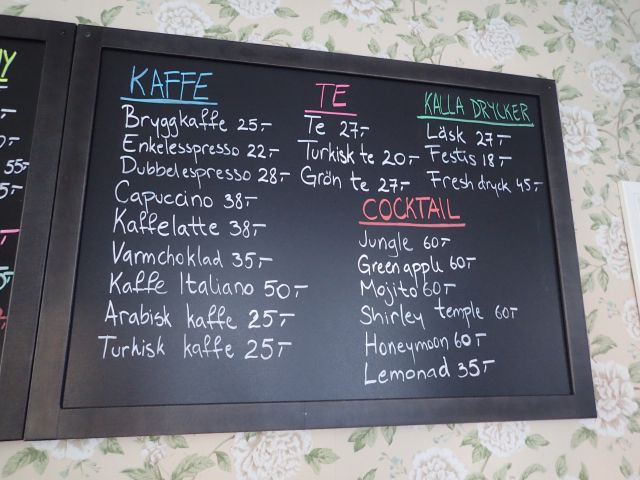 KAFFE
Bryggkaffe 25:-
Enkelesspresso 22:-
Dubbelespresso 28:-
Capuccino 38:-
Kaffelatte 38:-
Varmchoklad 35:-
Kaffe Italiano 50:-
Arabisk kaffe 25:-
Turkisk kaffe 25:-
TE
Te 27:-
Turkisk te 20:-
Grön te 27:-
KALLA DRYCKER
Läsk 27:-
Festis 18:-
Fresh dryck 45:-
COCKTAIL
Jungle 60:-
Green apple 60:-
Mojito 60:-
Shirley temple 60:-
Honeymoon 60:-
Lemonad 35:-
55:-